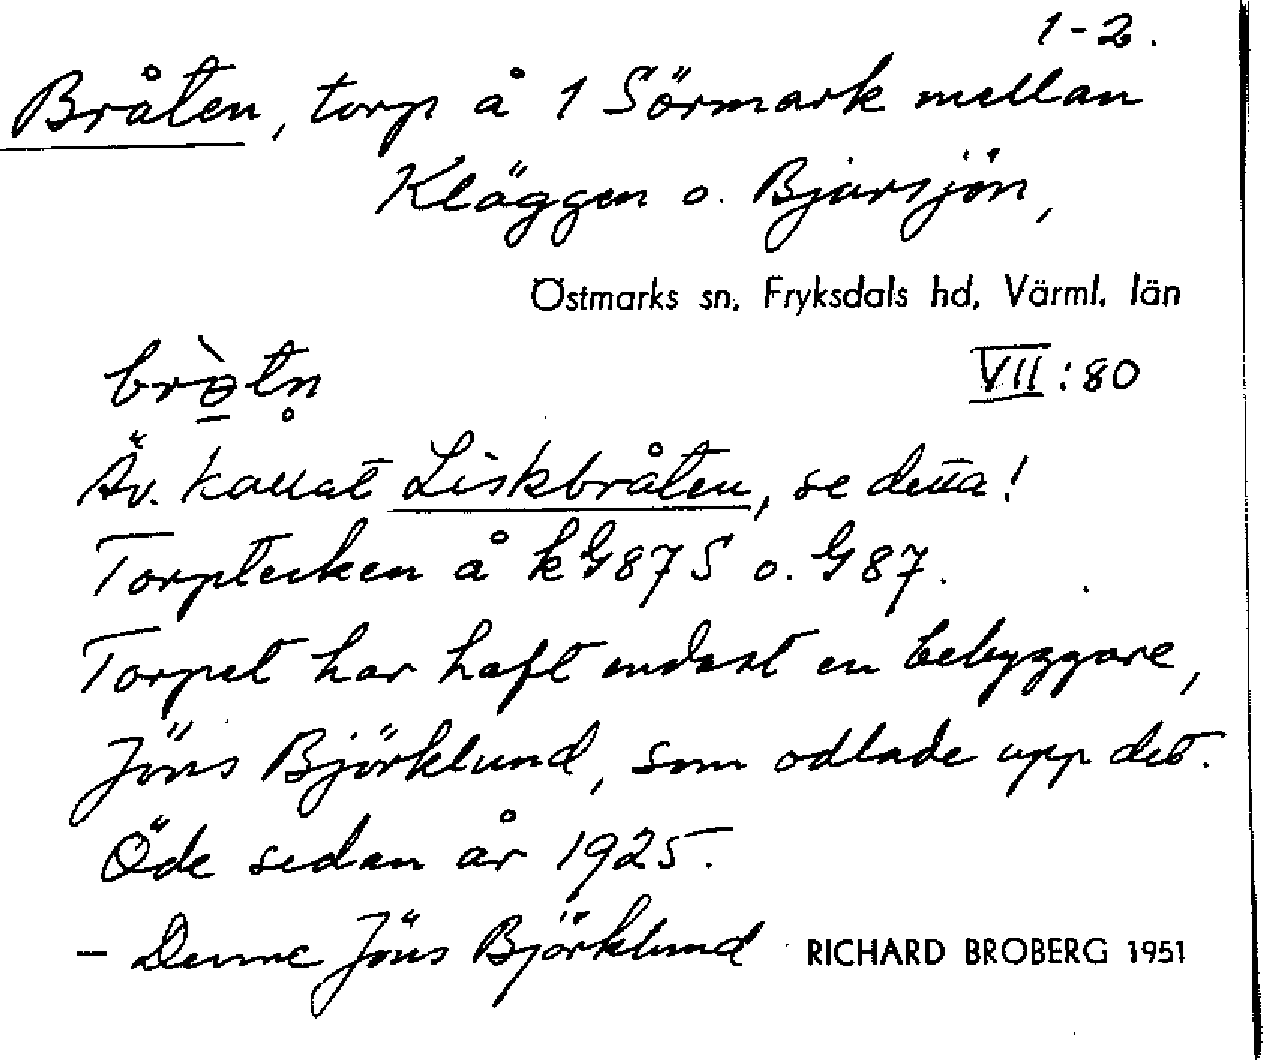 1-2.
Bråten, torp å 1 Sörmark mellan
Kläggen o. Bjursjön,
Östmarks sn, Fryksdals hd, Värml. län
brò̱tn̥
VII:80
Äv. kallat Liskbråten, se detta!
Torptecken å kG87S o. G87.
Torpet har haft endast en bebyggare,
Jöns Björklund, som odlade upp det.
Öde sedan år 1925.
- Denne Jöns Björklund
RICHARD BROBERG 1951